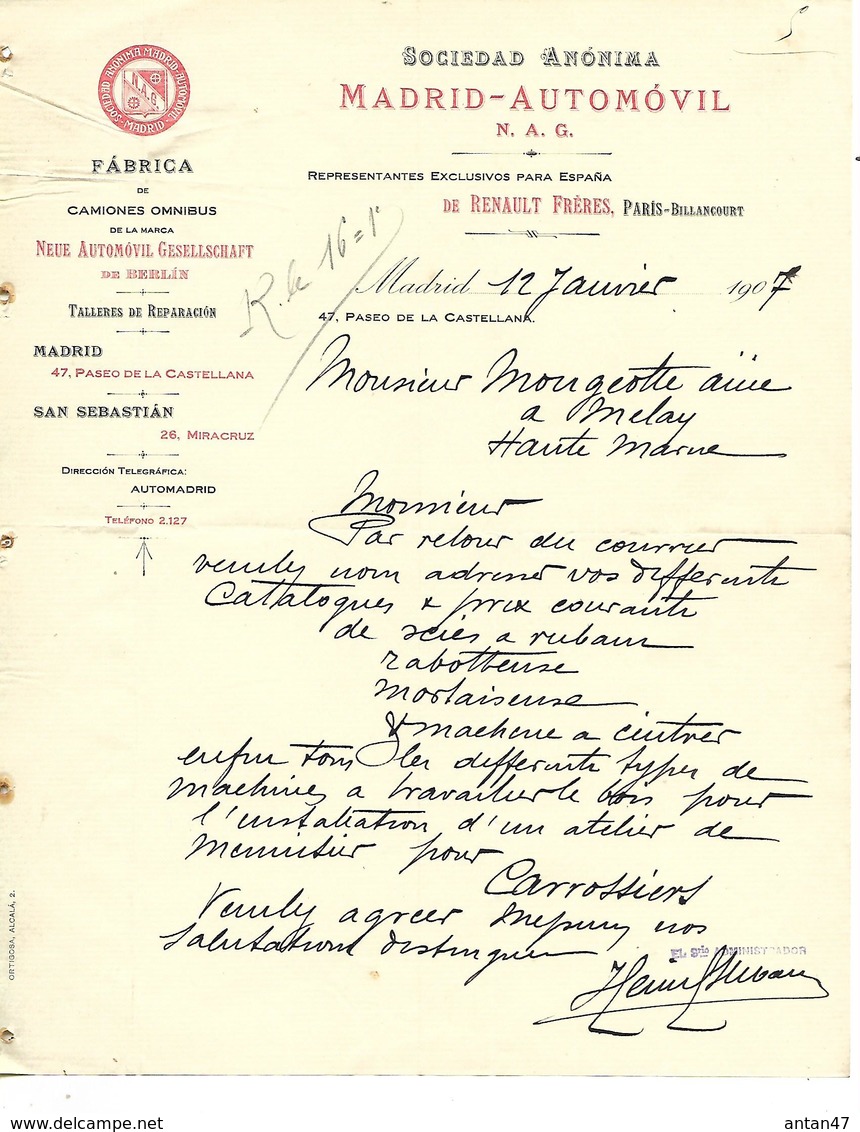 5
SOCIEDAD ANÓNIMA
MADRID-AUTOMÓVIL
N. A. G.
REPRESENTANTES EXCLUSIVOS PARA ESPAÑA
DE RENAULT FRÈRES, PARÍS-BILLANCOURT
SOCIEDAD ANÓNIMA MADRID-AUTOMÓVIL
N.A.G.
-MADRID-
FÁBRICA
DE
CAMIONES OMNIBUS
DE LA MARCA
NEUE AUTOMÓVIL GESELLSCHAFT
DE BERLÍN
TALLERES DE REPARACIÓN
MADRID
47, PASEO DE LA CASTELLANA
SAN SEBASTIÁN
26, MIRACRUZ
DIRECCIÓN TELEGRÁFICA:
AUTOMADRID
TELÉFONO 2.127
R. le 16=1
Madrid 12 Janvier 1907
47, PASEO DE LA CASTELLANA.
Monsieur Mongeotte
a Melay
Haute Marne
Monsieur
Par retour du courrier
adresser vos differents
Catalogues & prix courants
de scies a ruban
Rabotteuse
Mortaiseuse
& machine a cintrer
enfin tous les differents types de
machines a travailler le bois pour
l'instalation d'un atelier de
Menuisier pour
Carrossiers
agreer nos
Salutations
EL SRIO ADMINISTRADOR
ORTIGOSA, ALCALÁ, 2.
delcampe.net
antan47